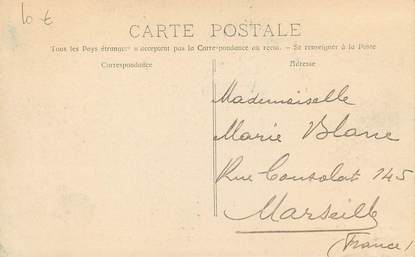 10 €
CARTE POSTALE
Tous les Pays étrangers n'acceptent pas la Correspondance au recto. — Se renseigner à la Poste
Correspondance
Adresse
Mademoiselle
Marie Blanc
Rue Consolat 145
Marseille
(France)